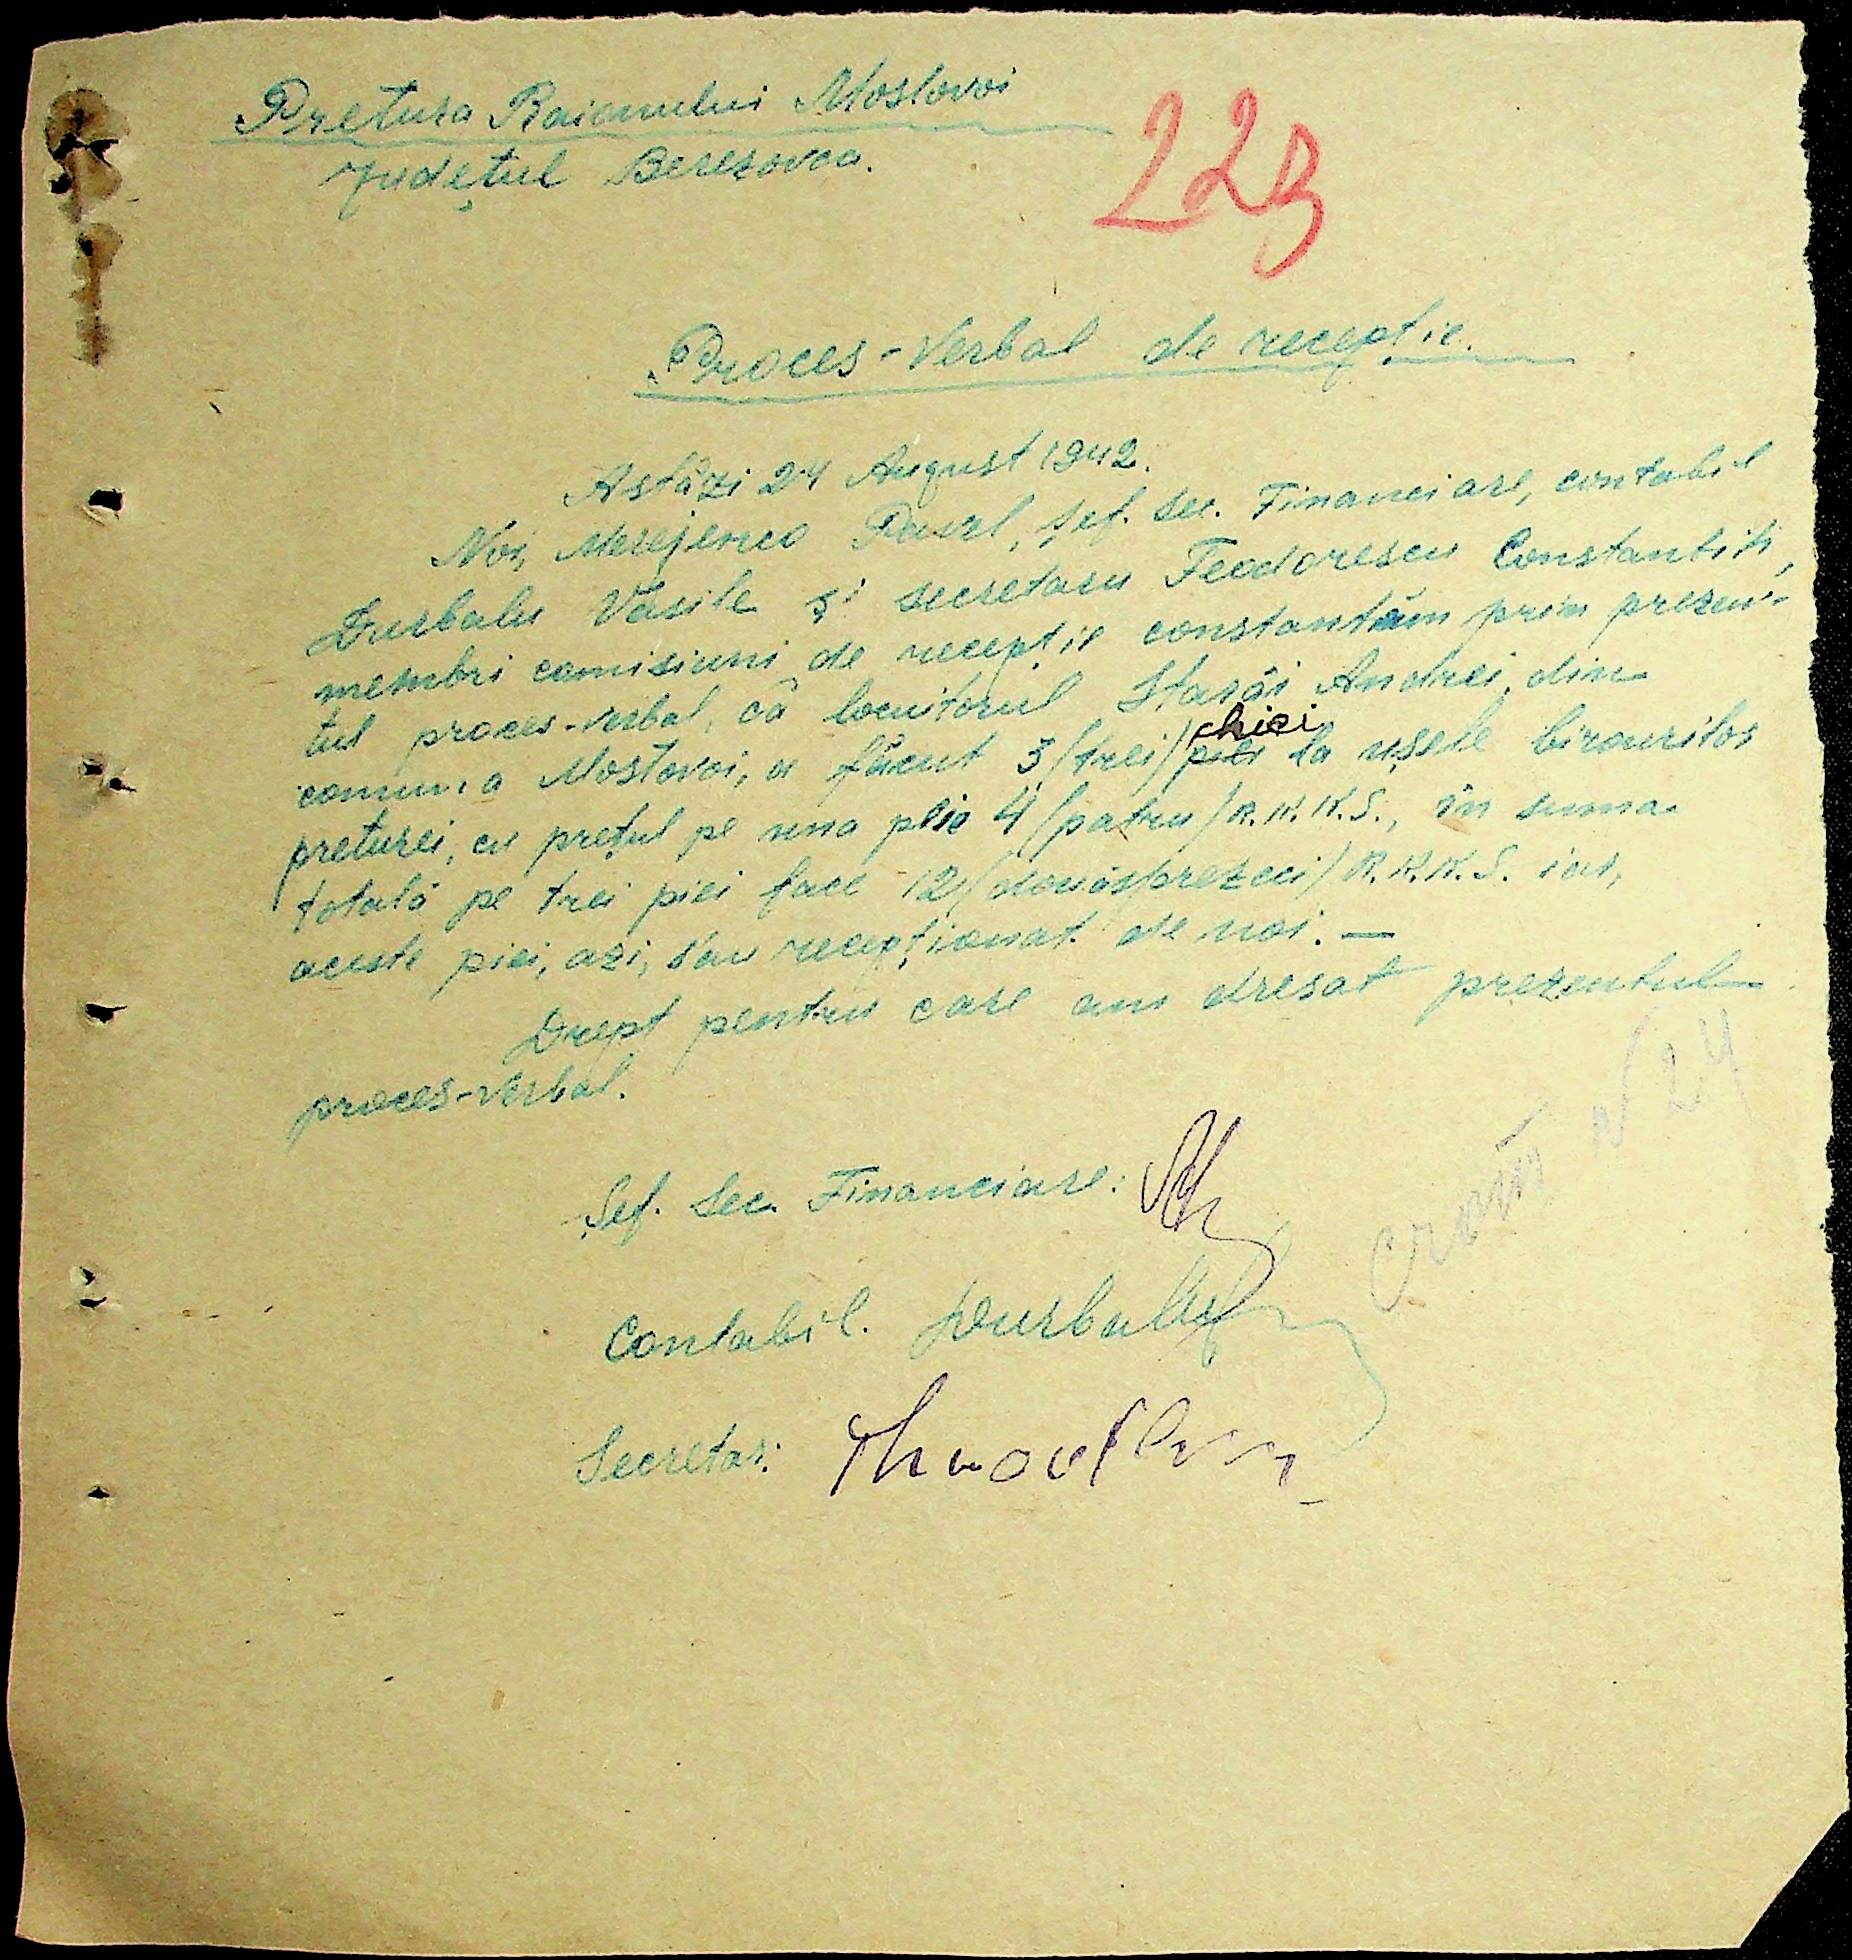 Pretura Raionului Mostovoi
Județul Berezovca.
223
Proces-Verbal de recepție.
Astăzi 24 August 1942.
Noi, Merejenco Pavel, șef. sec. Financiare, contabil
Durbalu Vasile și secretaru Teodorescu Constantin,
membri comisiuni de recepție constantăm prin prezen-
tul proces-verbal, că locuitorul Andrei, din
comuna Mostovoi, a făcut 3/trei/ piei chici la ușele birourilor
preturei, cu prețul pe una piie 4/patru/ R.K.K.S., în suma
totală pe trei piei face 12/douăsprezeci/ R.K.K.S. iar,
aceste piei, azi, s'au recepționat de noi. —
Drept pentru care am dresat prezentul
proces-verbal.
Șef. Sec. Financiare:
Contabil. Durbalu
Secretar:
24